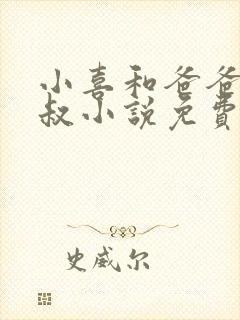 小喜和爸爸
叔小説免費
史威尔